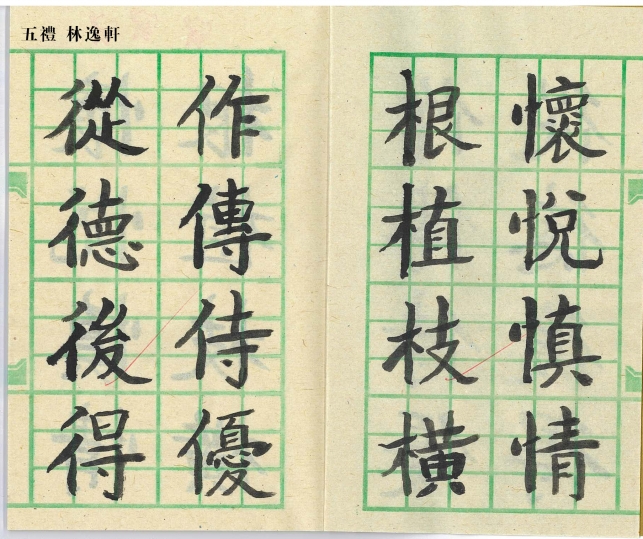 五禮 林逸軒
懷悅慎情
根植枝橫
作傳侍優
從德後得